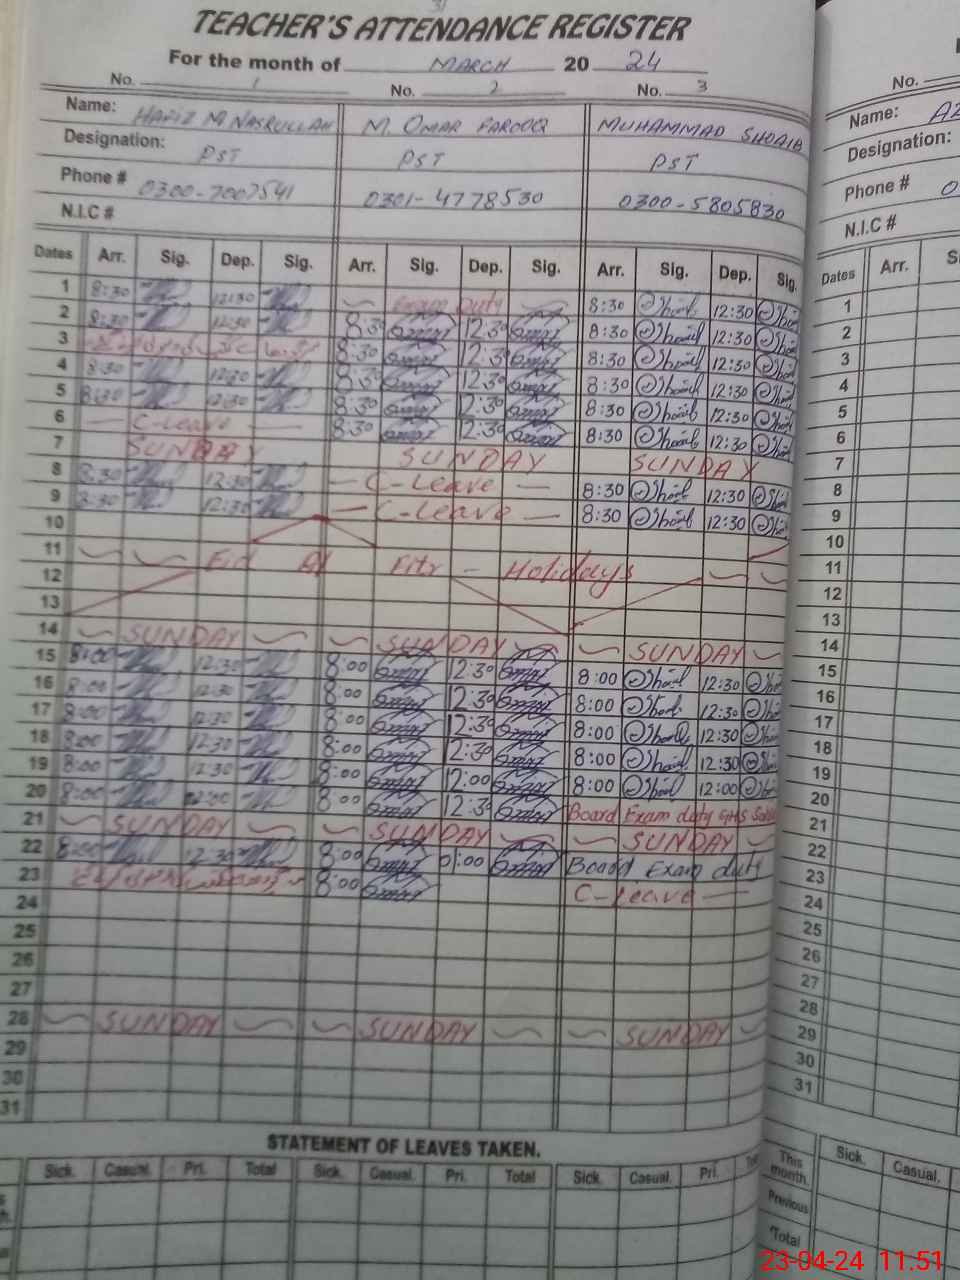 31
TEACHER'S ATTENDANCE REGISTER
For the month of MARCH 20 24
No. 1 No. 2 No. 3 No.
Name: HAFIZ M NASRULLAH M. OMAR FAROOQ MUHAMMAD SHOAIB Name: AZ
Designation: PST PST PST Designation:
Phone # 0300-7007541 0301-4778530 0300-5805830 Phone # 0
N.I.C # N.I.C #
Dates Arr. Sig. Dep. Sig. Arr. Sig. Dep. Sig. Arr. Sig. Dep. Sig. Dates Arr. S
1 8:30 12:30 Exam Duty 8:30 Shoaib 12:30 Shoaib 1
2 8:30 12:30 8:30 Omar 12:30 Omar 8:30 Shoaib 12:30 Shoaib 2
3 8:30 Omar 12:30 Omar 8:30 Shoaib 12:30 Shoaib 3
4 8:30 12:30 8:30 Omar 12:30 Omar 8:30 Shoaib 12:30 Shoaib 4
5 8:30 12:30 8:30 Omar 12:30 Omar 8:30 Shoaib 12:30 Shoaib 5
6 — C-Leave — 8:30 Omar 12:30 Omar 8:30 Shoaib 12:30 Shoaib 6
7 SUNDAY SUNDAY SUNDAY 7
8 8:30 12:30 — C-Leave — 8:30 Shoaib 12:30 Shoaib 8
9 8:30 12:30 — C-Leave — 8:30 Shoaib 12:30 Shoaib 9
10 10
11 Eid Al Fitr - Holidays 11
12 12
13 13
14 SUNDAY SUNDAY SUNDAY 14
15 8:00 12:30 8:00 Omar 12:30 Omar 8:00 Shoaib 12:30 Shoaib 15
16 8:00 12:30 8:00 Omar 12:30 Omar 8:00 Shoaib 12:30 Shoaib 16
17 8:00 12:30 8:00 Omar 12:30 Omar 8:00 Shoaib 12:30 Shoaib 17
18 8:00 12:30 8:00 Omar 12:30 Omar 8:00 Shoaib 12:30 Shoaib 18
19 8:00 12:30 8:00 Omar 12:00 Omar 8:00 Shoaib 12:00 Shoaib 19
20 8:00 12:00 8:00 Omar 12:30 Omar Board Exam duty GHS 20
21 SUNDAY SUNDAY SUNDAY 21
22 8:00 12:30 8:00 Omar 01:00 Omar Board Exam duty 22
23 8:00 Omar C-Leave — 23
24 24
25 25
26 26
27 27
28 SUNDAY SUNDAY SUNDAY 28
29 29
30 30
31 31
STATEMENT OF LEAVES TAKEN.
Sick. Casual. Pri. Total Sick. Casual. Pri. Total Sick. Casual. Pri. This month. Sick. Casual.
Previous
Total
23-04-24 11.51